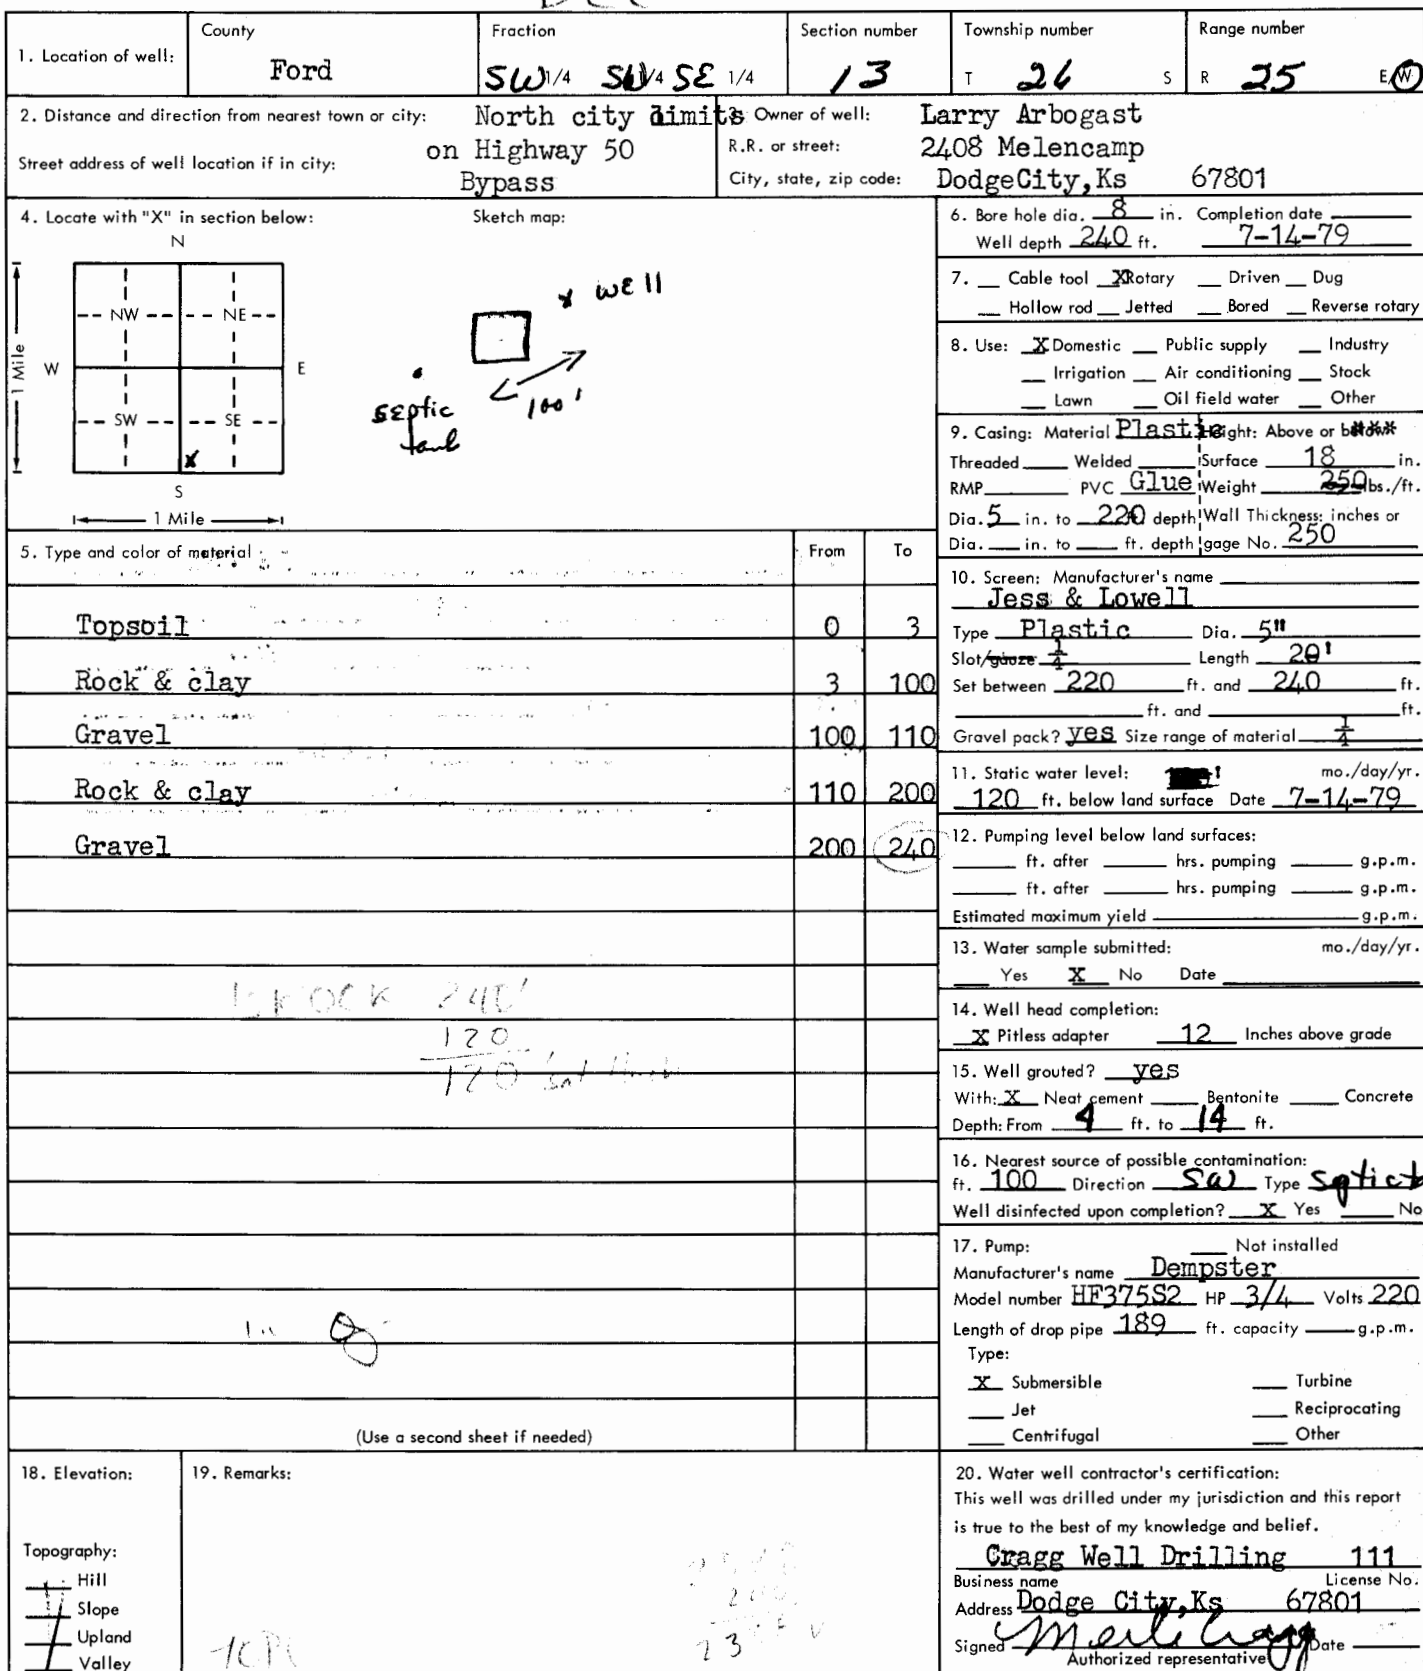 1. Location of well:
County
Ford
Fraction
SW 1/4 SW 1/4 SE 1/4
Section number
13
Township number
T 26 S
Range number
R 25 E/W
2. Distance and direction from nearest town or city: North city limits
on Highway 50
Bypass
Street address of well location if in city:
3. Owner of well: Larry Arbogast
R.R. or street: 2408 Melencamp
City, state, zip code: DodgeCity,Ks 67801
4. Locate with "X" in section below:
N
NW NE
W E
SW SE
X
S
1 Mile
1 Mile
Sketch map:
x WEll
100'
SEptic
tank
5. Type and color of material From To
Topsoil 0 3
Rock & clay 3 100
Gravel 100 110
Rock & clay 110 200
Gravel 200 240
240'
120
120
(Use a second sheet if needed)
6. Bore hole dia. 8 in. Completion date
Well depth 240 ft. 7-14-79
7. Cable tool X Rotary Driven Dug
Hollow rod Jetted Bored Reverse rotary
8. Use: X Domestic Public supply Industry
Irrigation Air conditioning Stock
Lawn Oil field water Other
9. Casing: Material Plastic Height: Above or below
Threaded Welded Surface 18 in.
RMP PVC Glue Weight 250 lbs./ft.
Dia. 5 in. to 220 depth Wall Thickness: inches or
Dia. in. to ft. depth gage No. 250
10. Screen: Manufacturer's name
Jess & Lowell
Type Plastic Dia. 5"
Slot/gauze 1/4 Length 20'
Set between 220 ft. and 240 ft.
ft. and ft.
Gravel pack? yes Size range of material 1/4
11. Static water level: mo./day/yr.
120 ft. below land surface Date 7-14-79
12. Pumping level below land surfaces:
ft. after hrs. pumping g.p.m.
ft. after hrs. pumping g.p.m.
Estimated maximum yield g.p.m.
13. Water sample submitted: mo./day/yr.
Yes X No Date
14. Well head completion:
X Pitless adapter 12 Inches above grade
15. Well grouted? yes
With: X Neat cement Bentonite Concrete
Depth: From 4 ft. to 14 ft.
16. Nearest source of possible contamination:
ft. 100 Direction SW Type
Well disinfected upon completion? X Yes No
17. Pump: Not installed
Manufacturer's name Dempster
Model number HF375S2 HP 3/4 Volts 220
Length of drop pipe 189 ft. capacity g.p.m.
Type:
X Submersible Turbine
Jet Reciprocating
Centrifugal Other
18. Elevation:
Topography:
Hill
Slope
Upland
Valley
19. Remarks:
20. Water well contractor's certification:
This well was drilled under my jurisdiction and this report
is true to the best of my knowledge and belief.
Cragg Well Drilling 111
Business name License No.
Address Dodge City,Ks 67801
Signed Merle Cragg Date
Authorized representative